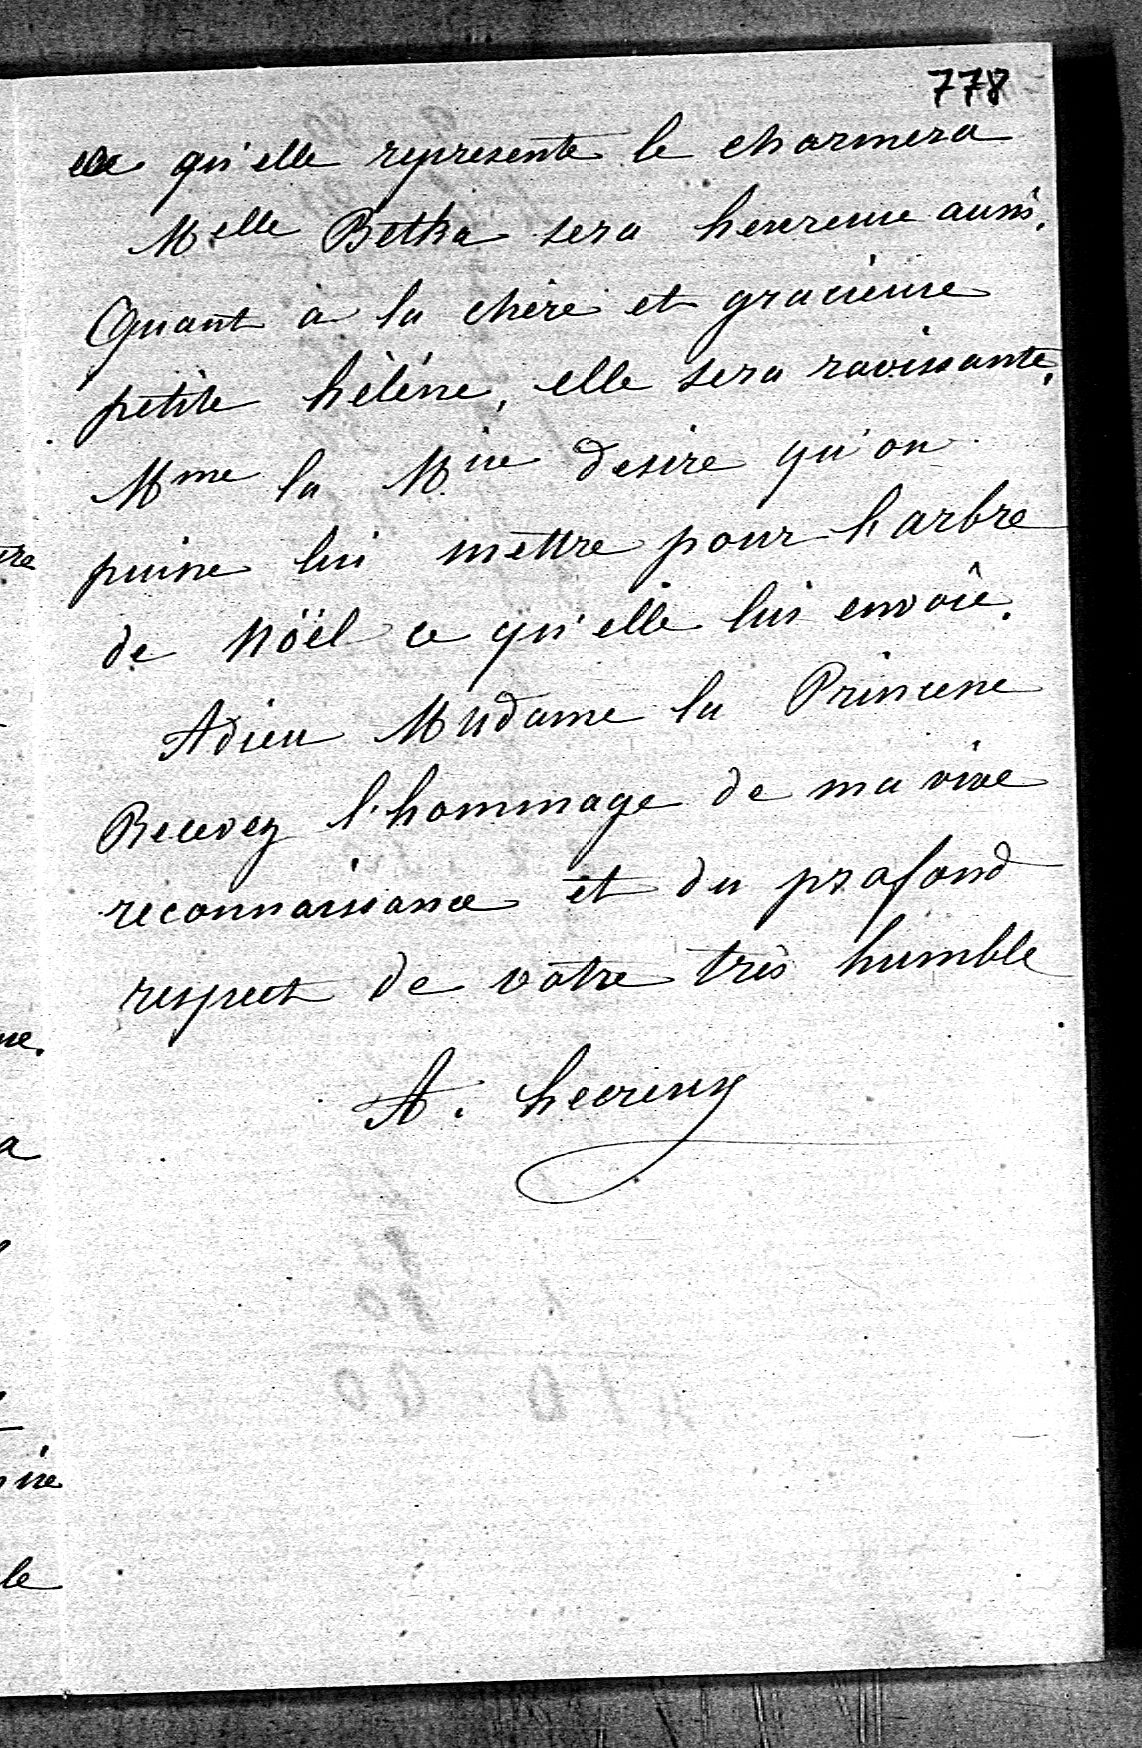 778
ce qu'elle represente le charmera
Melle Betka sera heureuse aussi.
Quant à la chère et gracieuse
petite hélène, elle sera ravissante.
Mme la Mise desire qu'on
puisse lui mettre pour l'arbre
de Nöel ce qu'elle lui envoie.
Adieu Madame la Princesse
Recevez l'hommage de ma vive
reconnaissance et du profond
respect de votre très humble
A.